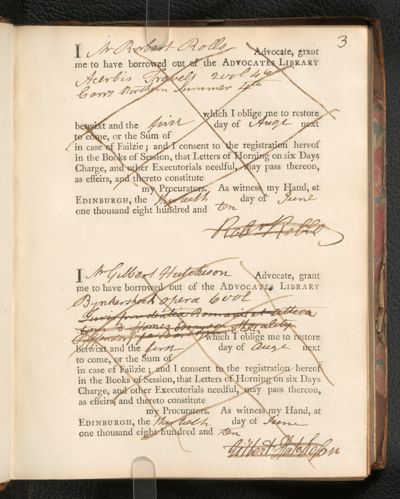 3
I Mr Robert Rollo Advocate, grant
me to have borrowed out of the ADVOCATES LIBRARY
Acerbis Travels 2 vol 4to
Carrs Northern Summer 4to
which I oblige me to restore
betwixt and the first day of Augt next
to come, or the Sum of
in case of Failzie; and I consent to the registration hereof
in the Books of Session, that Letters of Horning on six Days
Charge, and other Executorials needful, may pass thereon,
as effeirs, and thereto constitute
my Procurators. As witness my Hand, at
EDINBURGH, the day of June
one thousand eight hundred and ten
Robt Rollo
I Mr Gilbert Hutchison Advocate, grant
me to have borrowed out of the ADVOCATES LIBRARY
Bynkershoek opera 6 vol
Morality
which I oblige me to restore
betwixt and the first day of Augt next
to come, or the Sum of
in case of Failzie; and I consent to the registration hereof
in the Books of Session, that Letters of Horning on six Days
Charge, and other Executorials needful, may pass thereon,
as effeirs, and thereto constitute
my Procurators. As witness my Hand, at
EDINBURGH, the day of June
one thousand eight hundred and ten
Gilbert Hutchison